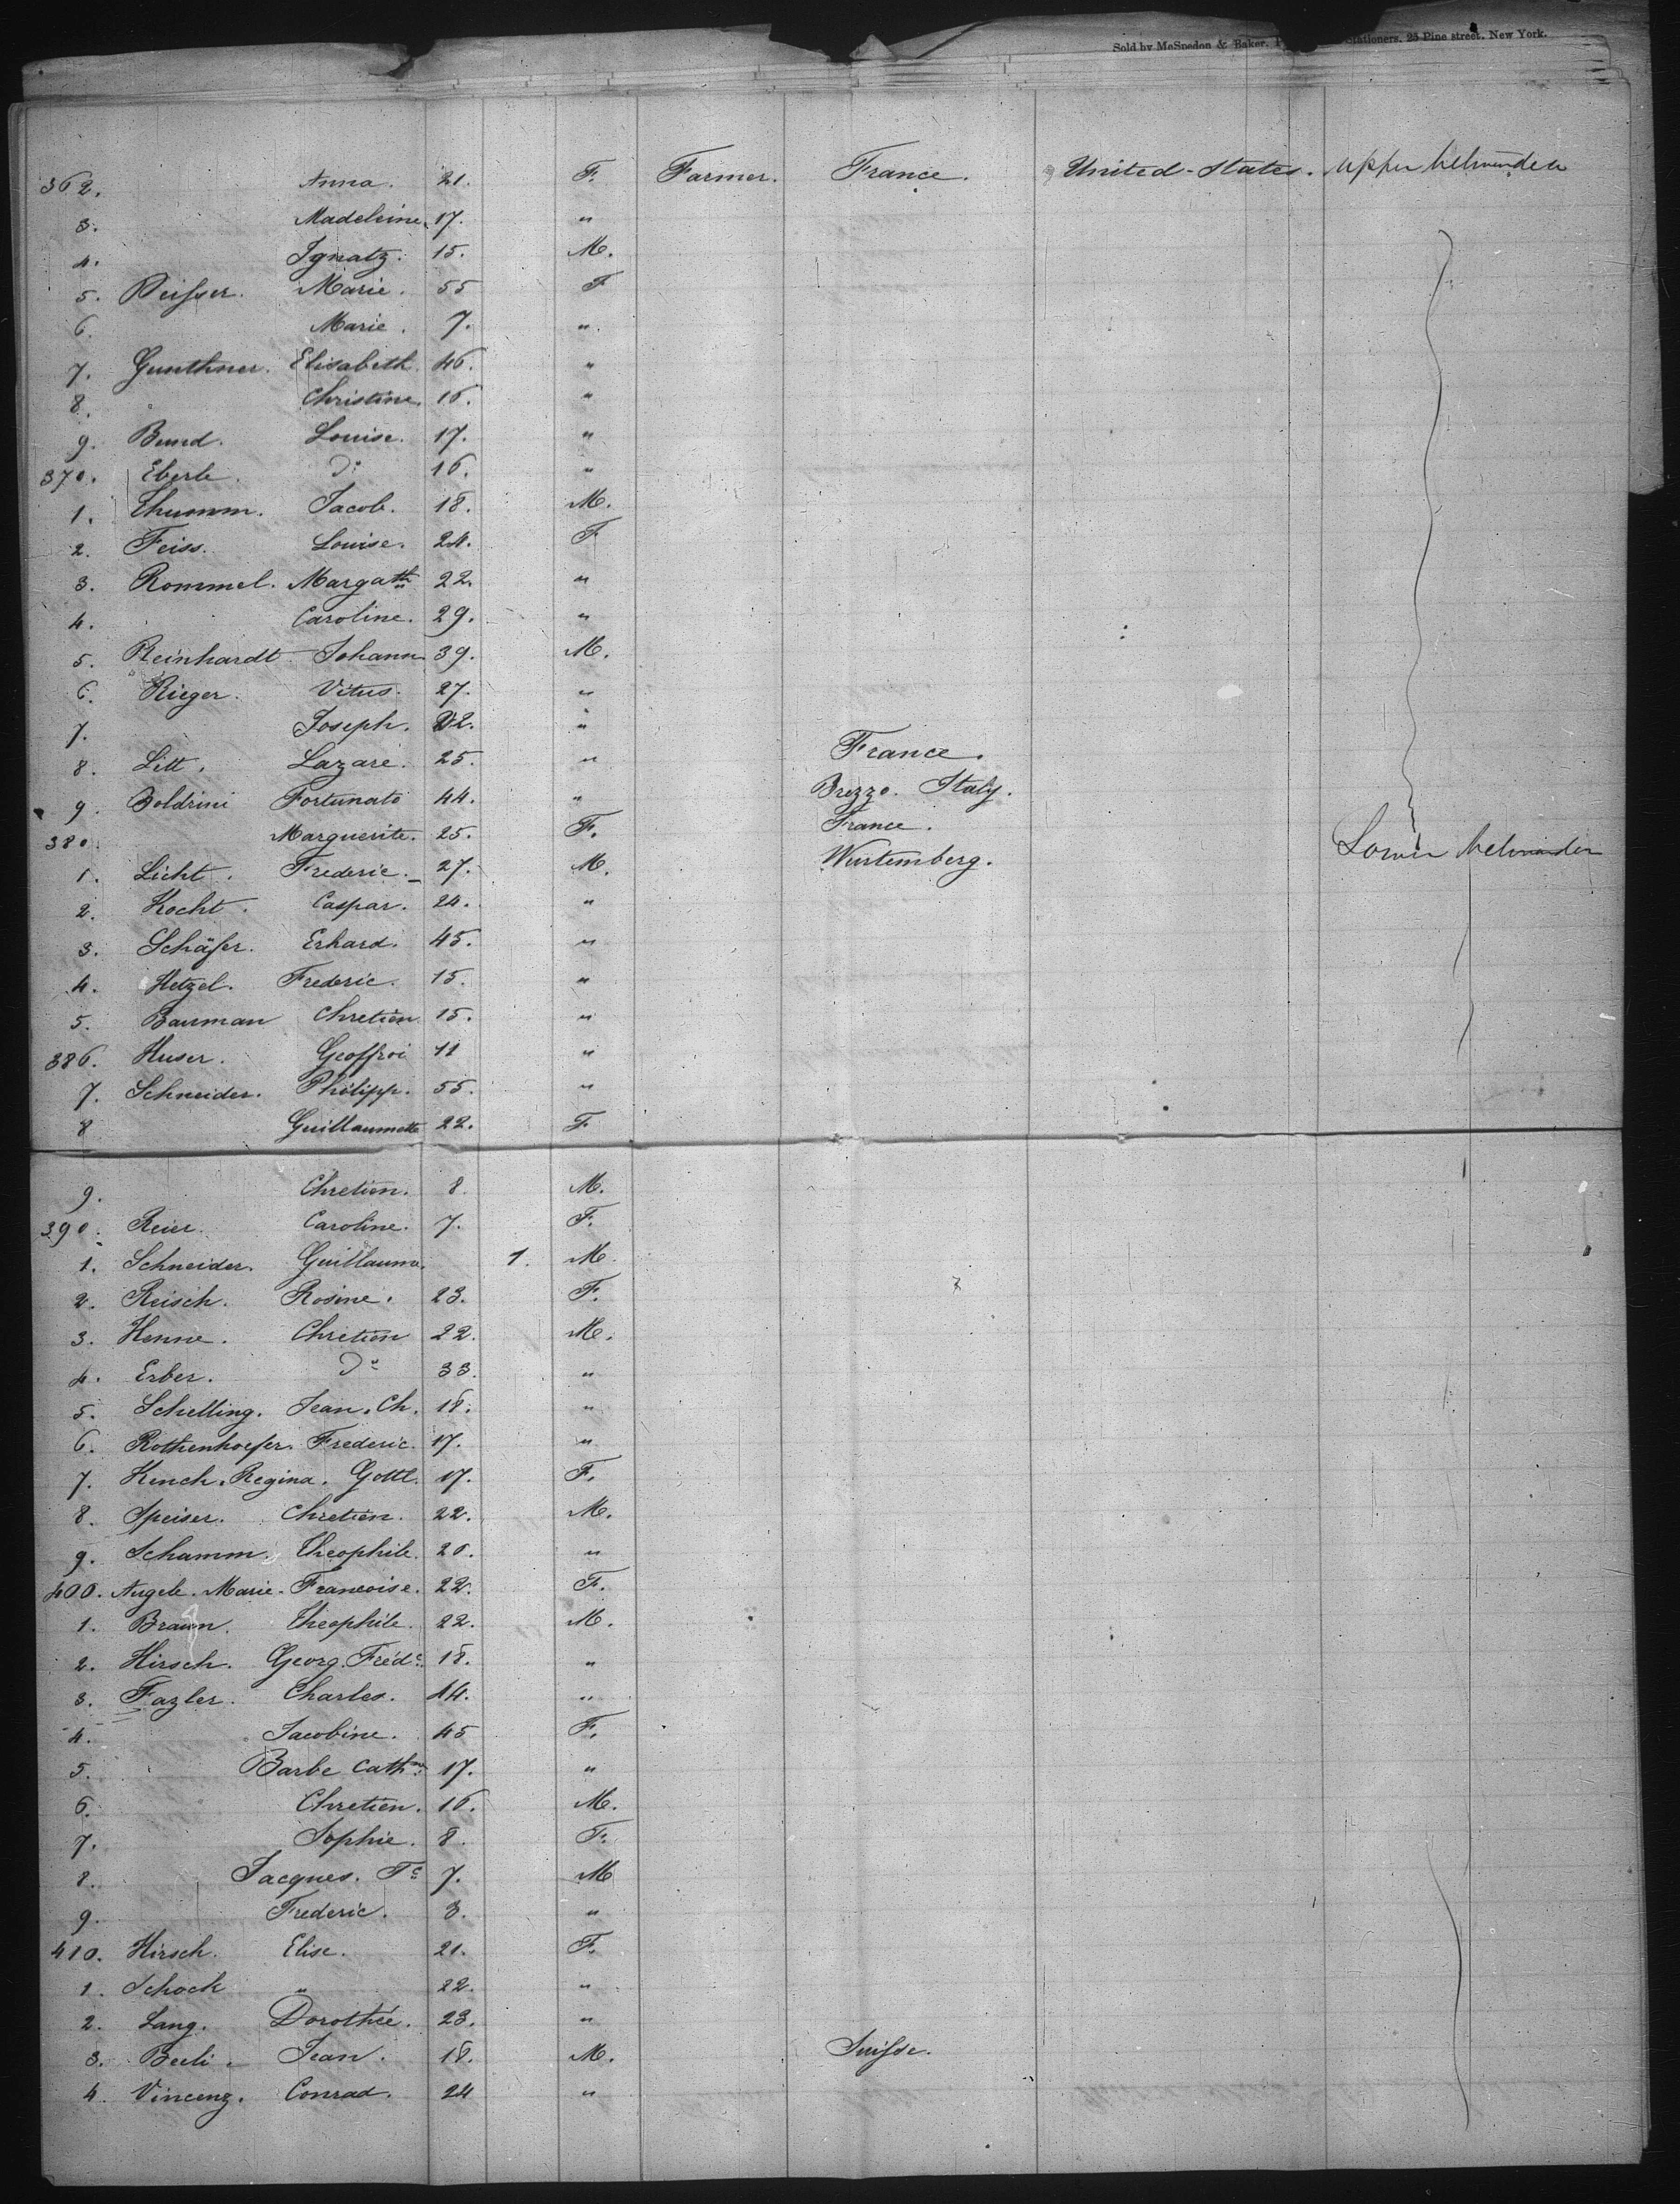 Sold by McSpedon & Baker, Stationers, 25 Pine street, New York.
362. Anna. 21. F. Farmer. France. United-States. Upper between deck
3. Madeleine. 17. "
4. Ignatz. 15. M.
5. Reisser. Marie. 55 F
6. Marie. 7. "
7. Gunthner. Elisabeth. 46. "
8. Christine. 16. "
9. Bund. Louise. 17. "
370. Eberle. do 16. "
1. Thumm. Jacob. 18. M.
2. Feiss. Louise. 24. F
3. Rommel. Margath 22. "
4. Caroline. 29. "
5. Reinhardt Johann 39. M.
6. Rieger. Vitus. 27. "
7. Joseph. 22. "
8. Litt. Lazare. 25. " France.
9. Boldrini Fortunato 44. " Brezzo. Italy.
380. Marguerite. 25. F. France.
1. Licht. Frederic. 27. M. Wurtemberg. Lower between deck
2. Kocht. Caspar. 24. "
3. Schäfer. Erhard. 45. "
4. Hetzel. Frederic. 15. "
5. Bauman Chretien 15. "
386. Huser. Geoffroi 11 "
7. Schneider. Philipp. 55. "
8 Guillaumette 22. F
9. Chretien. 8. M.
390. Reier. Caroline. 7. F.
1. Schneider. Guillaume. 1. M.
2. Reisch. Rosine. 23. F.
3. Henne. Chretien 22. M.
4. Erber. do 33. "
5. Schelling. Jean. Ch. 18. "
6. Rothenhoefer. Frederic. 17. "
7. Kench. Regina. Gottl. 17. F.
8. Speiser. Chretien. 22. M.
9. Schamm. Theophile. 20. "
400. Angele. Marie. Francoise. 22. F.
1. Braun. Theophile. 22. M.
2. Hirsch. Georg. Fredc. 18. "
3. Fazler. Charles. 14. "
4. Jacobine. 45 F.
5. Barbe Cathne. 17. "
6. Chretien. 16. M.
7. Sophie. 8. F.
8. Jacques. Fc 7. M
9. Frederic. 3. "
410. Hirsch. Elise. 21. F.
1. Schock " 22. "
2. Lang. Dorothée. 23. "
3. Beeli. Jean. 18. M. Suisse.
4. Vincenz. Conrad. 24 "